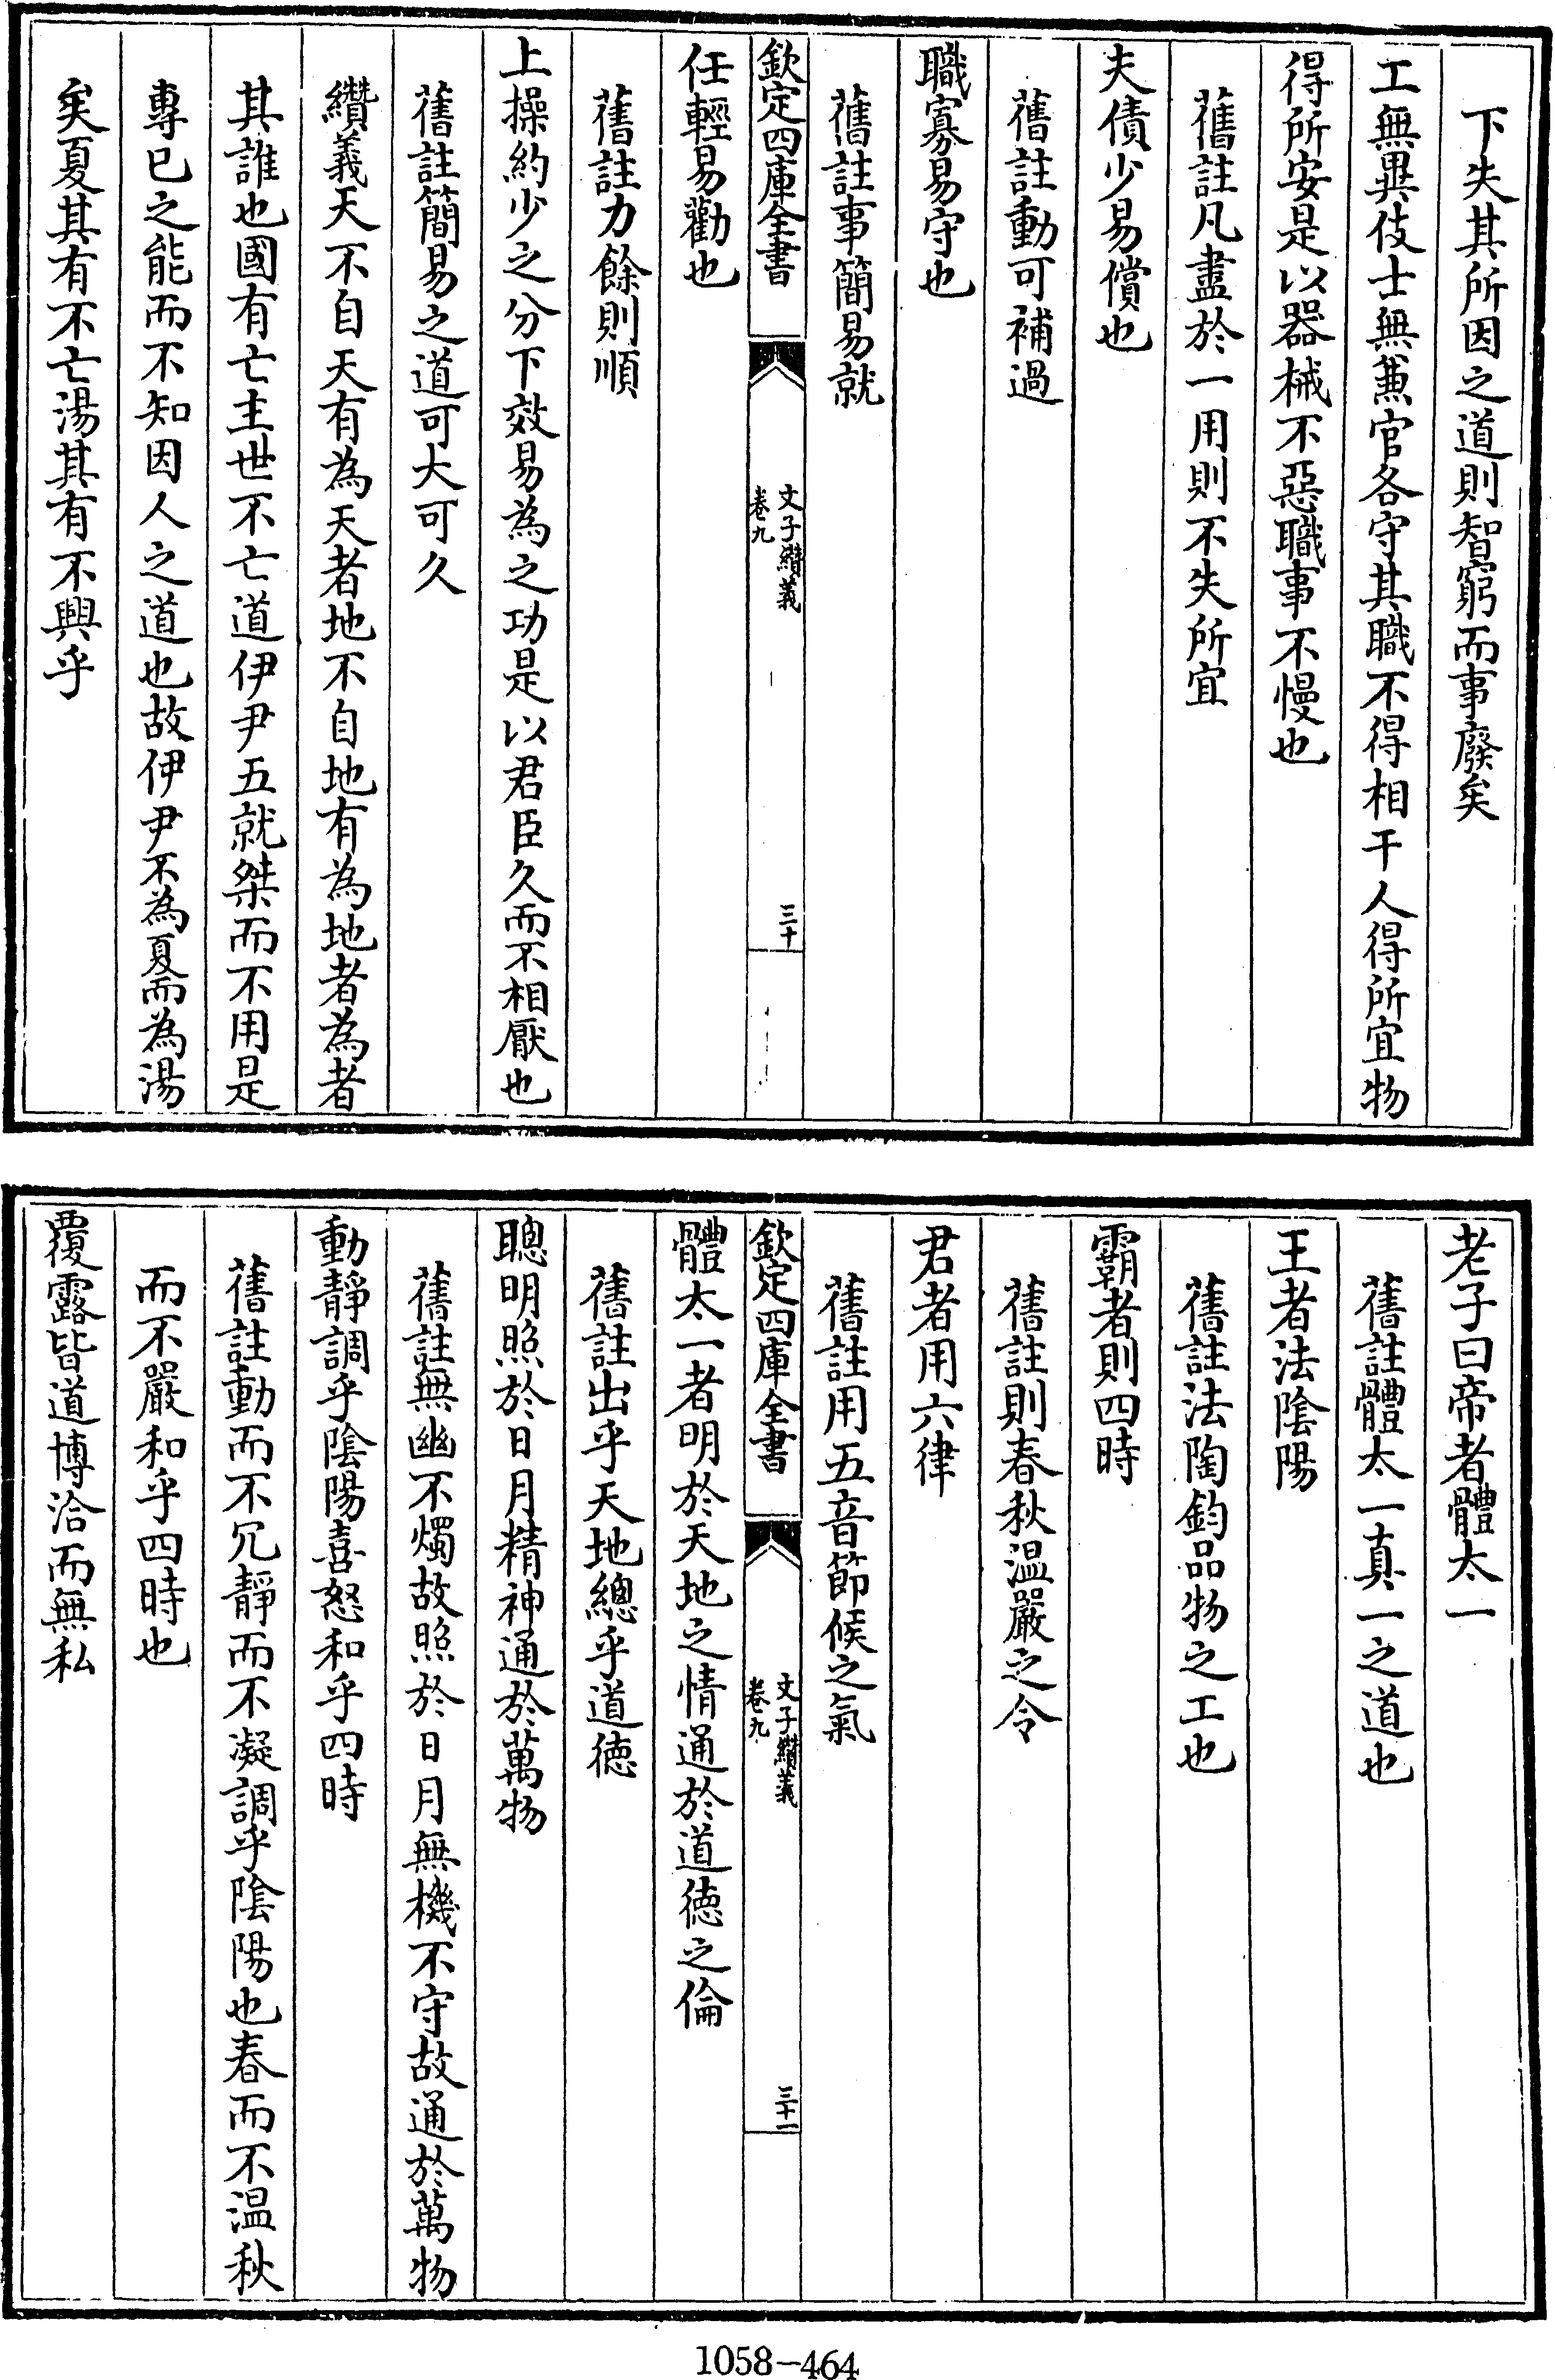 下失其所因之道則智窮而事廢矣
工無異伎士無兼官各守其職不得相干人得所宜物
得所安是以器械不惡職事不慢也
舊註凡盡於一用則不失所宜
夫債少易償也
舊註動可補過
職寡易守也
舊註事簡易就
欽定四庫全書
文子纘義
卷九
三十
任輕易勸也
舊註力餘則順
上操約少之分下效易為之功是以君臣久而不相厭也
舊註簡易之道可大可久
纘義天不自天有為天者地不自地有為地者為者
其誰也國有亡主世不亡道伊尹五就桀而不用是
專已之能而不知因人之道也故伊尹不為夏而為湯
矣夏其有不亡湯其有不興乎
老子曰帝者體太一
舊註體太一真一之道也
王者法陰陽
舊註法陶鈞品物之工也
霸者則四時
舊註則春秋温嚴之令
君者用六律
舊註用五音節候之氣
欽定四庫全書
文子纘義
卷九
三十一
體太一者明於天地之情通於道徳之倫
舊註出乎天地總乎道徳
聰明照於日月精神通於萬物
舊註無幽不燭故照於日月無機不守故通於萬物
動靜調乎陰陽喜怒和乎四時
舊註動而不冗靜而不凝調乎陰陽也春而不温秋
而不嚴和乎四時也
覆露皆道博洽而無私
1058-464